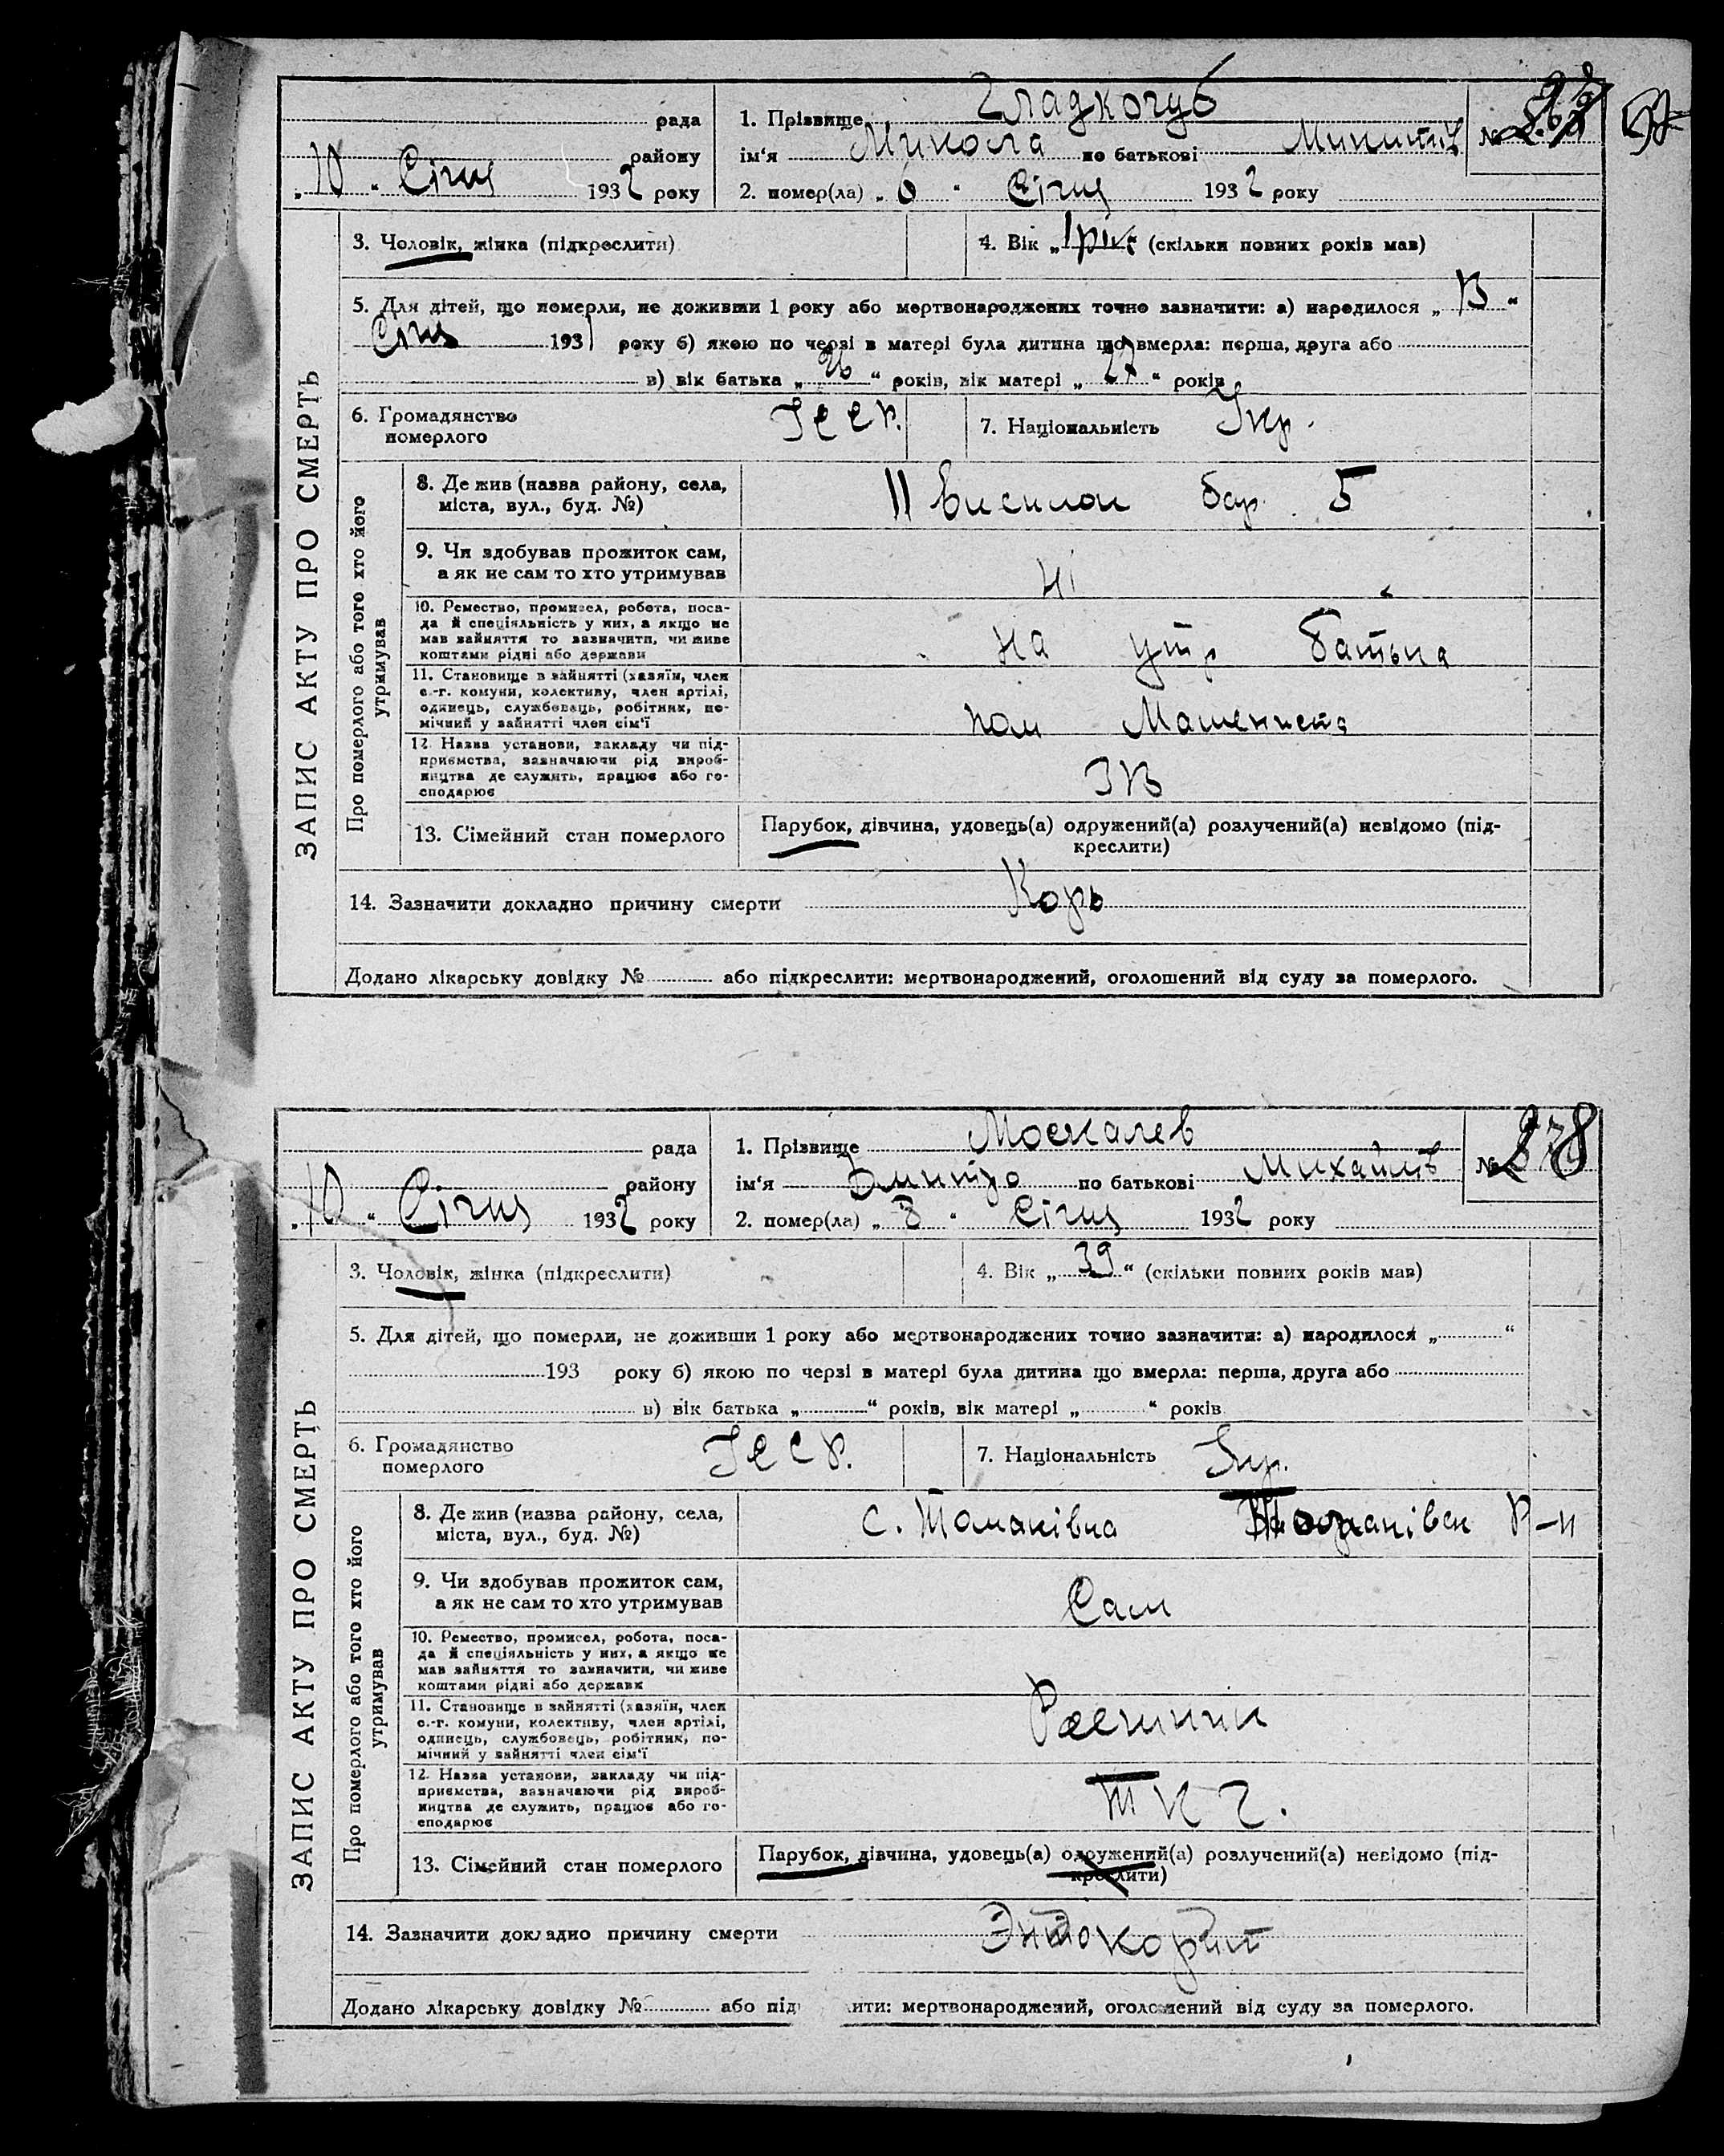 рада
району
„10“ Січня 1932 року
1. Прізвище Гладкочуб
ім'я Микола по батькові Микитів
2. помер(ла) „6“ Січня 1932 року
№
ЗАПИС АКТУ ПРО СМЕРТЬ
3. Чоловік, жінка (підкреслити)
4. Вік „1 рік“ (скільки повних років мав)
5. Для дітей, що померли, не доживши 1 року або мертвонароджених точно зазначити: а) народилося „13“
Січня 1931 року б) якою по черзі в матері була дитина що вмерла: перша, друга або
в) вік батька „26“ років, вік матері „27“ років
6. Громадянство
померлого
УССР.
7. Національність Укр.
Про померлого або того хто його
утримував
8. Де жив (назва району, села,
міста, вул., буд. №)
II Виселок бар. 5
9. Чи здобував прожиток сам,
а як не сам то хто утримував
Ні
10. Ремество, промисел, робота, поса-
да й спеціяльність у них, а якщо не
мав зайняття то зазначити, чи живе
коштами рідні або держави
на утр батька
11. Становище в зайнятті (хазяїн, член
с.-г. комуни, колективу, член артілі,
одинець, службовець, робітник, по-
мічний у зайнятті член сім'ї
пом Машениста
12. Назва установи, закладу чи під-
приємства, зазначаючи рід вироб-
ництва де служить, працює або го-
сподарює
13. Сімейний стан померлого
Парубок, дівчина, удовець(а) одружений(а) розлучений(а) невідомо (під-
креслити)
14. Зазначити докладно причину смерти Корь
Додано лікарську довідку № або підкреслити: мертвонароджений, оголошений від суду за померлого.
рада
району
„10“ Січня 1932 року
1. Прізвище Москалев
ім'я Дмитро по батькові Михайлів
2. помер(ла) „8“ Січня 1932 року
№ 278
ЗАПИС АКТУ ПРО СМЕРТЬ
3. Чоловік, жінка (підкреслити)
4. Вік „39“ (скільки повних років мав)
5. Для дітей, що померли, не доживши 1 року або мертвонароджених точно зазначити: а) народилося „ “
193 року б) якою по черзі в матері була дитина що вмерла: перша, друга або
в) вік батька „ “ років, вік матері „ “ років
6. Громадянство
померлого
УССР.
7. Національність Укр.
Про померлого або того хто його
утримував
8. Де жив (назва району, села,
міста, вул., буд. №)
с. Томаківка Томаківск Р-н
9. Чи здобував прожиток сам,
а як не сам то хто утримував
Сам
10. Ремество, промисел, робота, поса-
да й спеціяльність у них, а якщо не
мав зайняття то зазначити, чи живе
коштами рідні або держави
11. Становище в зайнятті (хазяїн, член
с.-г. комуни, колективу, член артілі,
одинець, службовець, робітник, по-
мічний у зайнятті член сім'ї
12. Назва установи, закладу чи під-
приємства, зазначаючи рід вироб-
ництва де служить, працює або го-
сподарює
13. Сімейний стан померлого
Парубок, дівчина, удовець(а) одружений(а) розлучений(а) невідомо (під-
креслити)
14. Зазначити докладно причину смерти Эндокордит
Додано лікарську довідку № або під ити: мертвонароджений, оголошений від суду за померлого.